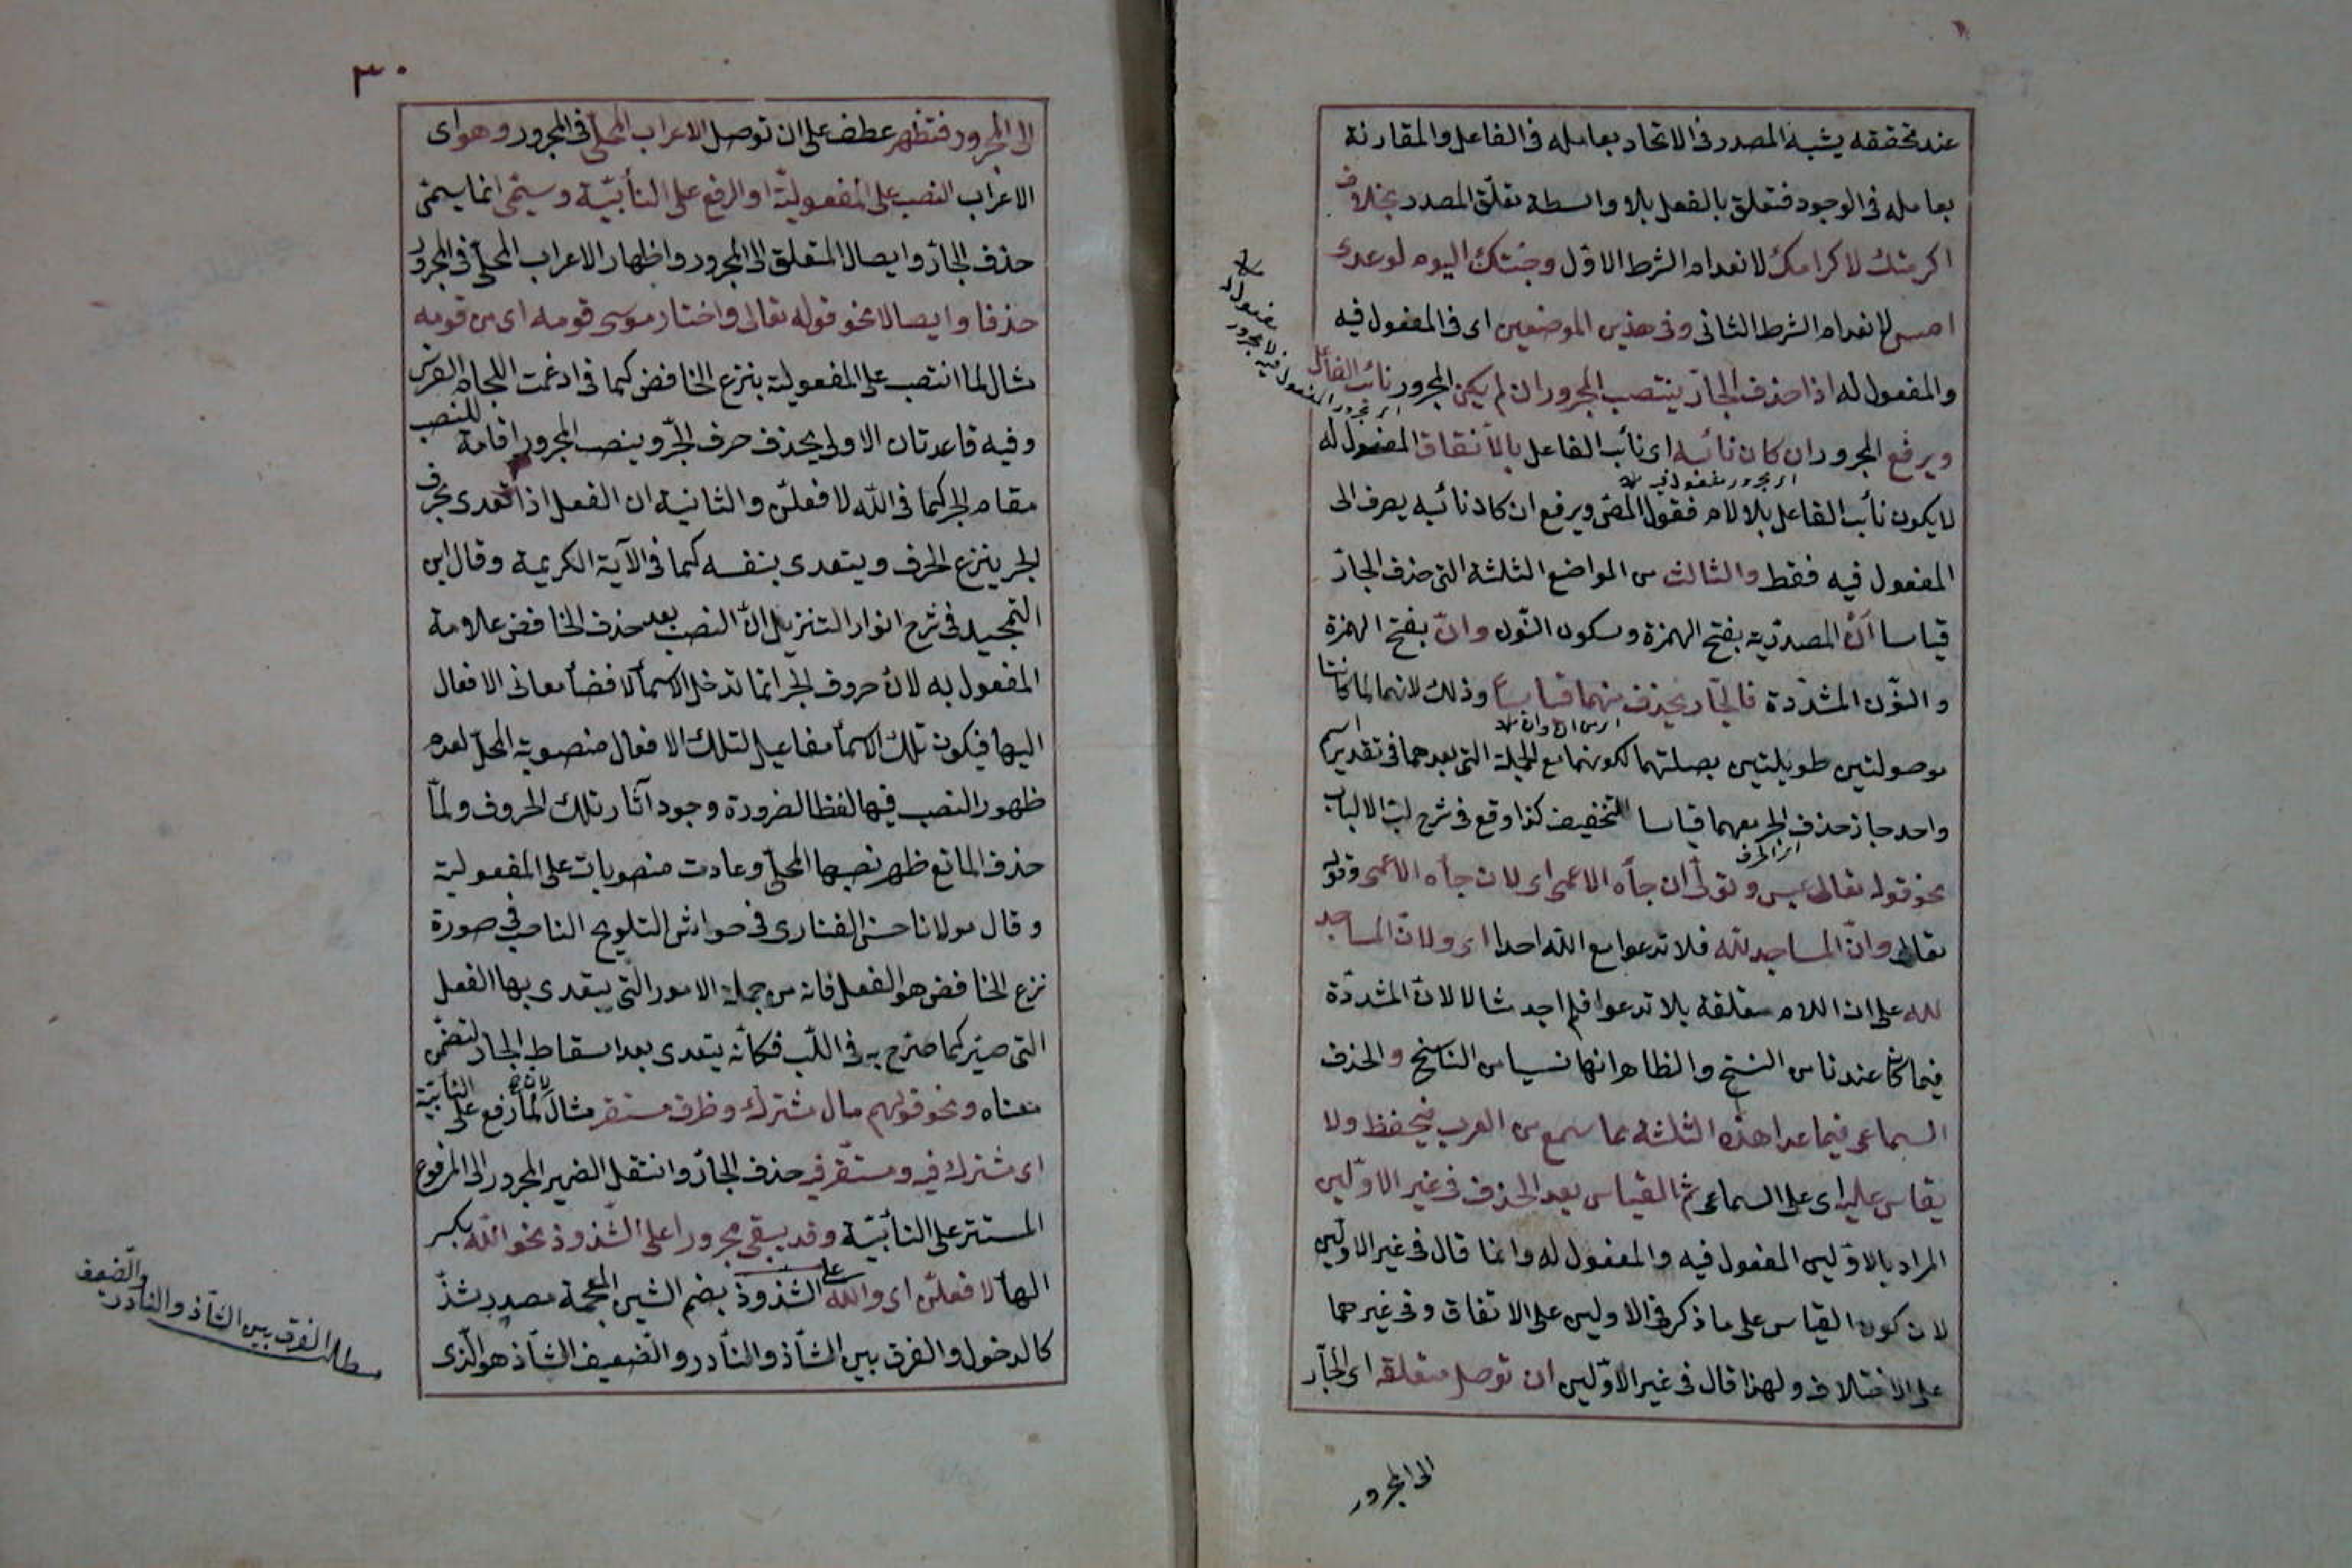 عند تحققه يشبه المصدر فى الاتحاد بعامله فى الفاعل والمقارنة
بعامله فى الوجود فتعلق بالفعل بلا واسطة تعلق المصدر بخلاف
اكرمتك لاكرامك لانعدام الشرط الاول وجئتك اليوم لوعدى
امس لانعدام الشرط الثانى وفى هذين الموضعين اى فى المفعول فيه
والمفعول له اذا حذف الجارّ ينتصب المجرور ان لم يكن المجرور نائب الفاعل
ويرفع المجرور ان كان نائبه اى نائب الفاعل بالاتفاق المفعول له
لا يكون نائب الفاعل بلا لام فقول المص ويرفع ان كان نائبه يصرف الى
المفعول فيه فقط والثالث من المواضع الثلثة التى حذف الجارّ
قياسا أنْ المصدريّة بفتح الهمزة وسكون النّون وانّ بفتح الهمزة
والنّون المشدّدة فالجّار يحذف منهما قياسا وذلك لانهما لما كانتا
موصولتين طويلتين بصلتهما لكونهما مع الجملة التى بعدهما فى تقدير اسم
واحد جاز حذف الجر معهما قياسا للتخفيف كذا وقع فى شرح لبّ الالباب
نحو قوله تعالى عبس وتولّى ان جأه الاعمى اى لان جأه الاعمى وقوله
تعالى وانّ المساجد لله فلا تدعوا مع الله احدا اى ولانّ المساجد
لله على ان اللام متعلقة بلا تدعوا فلم اجد مثالا لانّ المشدّدة
فيما كان عندنا من النسخ والظاهر انها نسيا من الناسخ والحذف
السماعى فيما عدا هذه الثلثة مما سمع من العرب فيحفظ ولا
يقاس عليه اى على السماعى ثم القياس بعد الحذف فى غير الاوّلين
المراد بالاوّلين المفعول فيه والمفعول له وانما قال فى غير الاوّلين
لان كون القياس على ما ذكر فى الاولين على الاتفاق وفى غيرهما
على الاختلاف ولهذا قال فى غير الاوّلين ان توصل متعلقه اى الجارّ
الى المجرور
٣٠
الى المجرور فتظهر عطف على ان توصل الاعراب المحلّى فى المجرور وهو اى
الاعراب النصب على المفعوليّة او الرفع على النأبيّة وسيمّى انما يسمّى
حذف الجارّ وايصال المتعلق الى المجرور واظهار الاعراب المحلّى فى المجرور
حذفا وايصالا نحو قوله تعالى واختار موسى قومه اى من قومه
مثال لما انتصب على المفعولية بنزع الخافض كما فى ادغمت اللجام الفرس
وفيه قاعدتان الاولى يحذف حرف الجرّ وينصب المجرور اقامة للنصب
مقام الجر كما فى الله لافعلنّ والثانية ان الفعل اذا تعدى بحرف
الجر ينزع الحرف ويتعدى بنفسه كما فى الآية الكريمة وقال ابن
التمجيد فى شرح انوار التنزيل انّ النصب بعد حذف الخافض علامة
المفعول به لانّ حروف الجر انما تدخل الاسمأ لافضأ معانى الافعال
اليها فيكون تلك الاسمأ مفاعيل لتلك الافعال منصوبة المحلّ لعدم
ظهور النصب فيها لفظا لضرورة وجود آثار تلك الحروف ولمّا
حذف المانع ظهر نصبها المحلّى وعادت منصوبات على المفعولية
وقال مولانا حسن الفنارى فى حواشى التلويح الناصب فى صورة
نزع الخافض هو الفعل فانه من جملة الامور التى يتعدى بها الفعل
التى صيّر كما صرّح به فى اللّب فكأنّه يتعدى بعد اسقاط الجار لتضمن
معناه ونحو قولهم مال مشترك وظرف مستقر مثال لما رفع على النأبيّة
اى مشترك فيه ومستقرّ فيه حذف الجارّ وانتقل الضمير المجرور الى المرفوع
المستتر على النأبيّة وقد يبقى مجرورا على الشّذوذ نحو اللّه بكسر
الهأ لافعلنّ اى والله على الشذوذ بضم الشين المعجمة مصدر شذّ
كالدخول والفرق بين الشّاذ والنّادر والضعيف الشّاذ هو الّذى
مطلب الفرق بين الشّاذ والنادر
والضعف